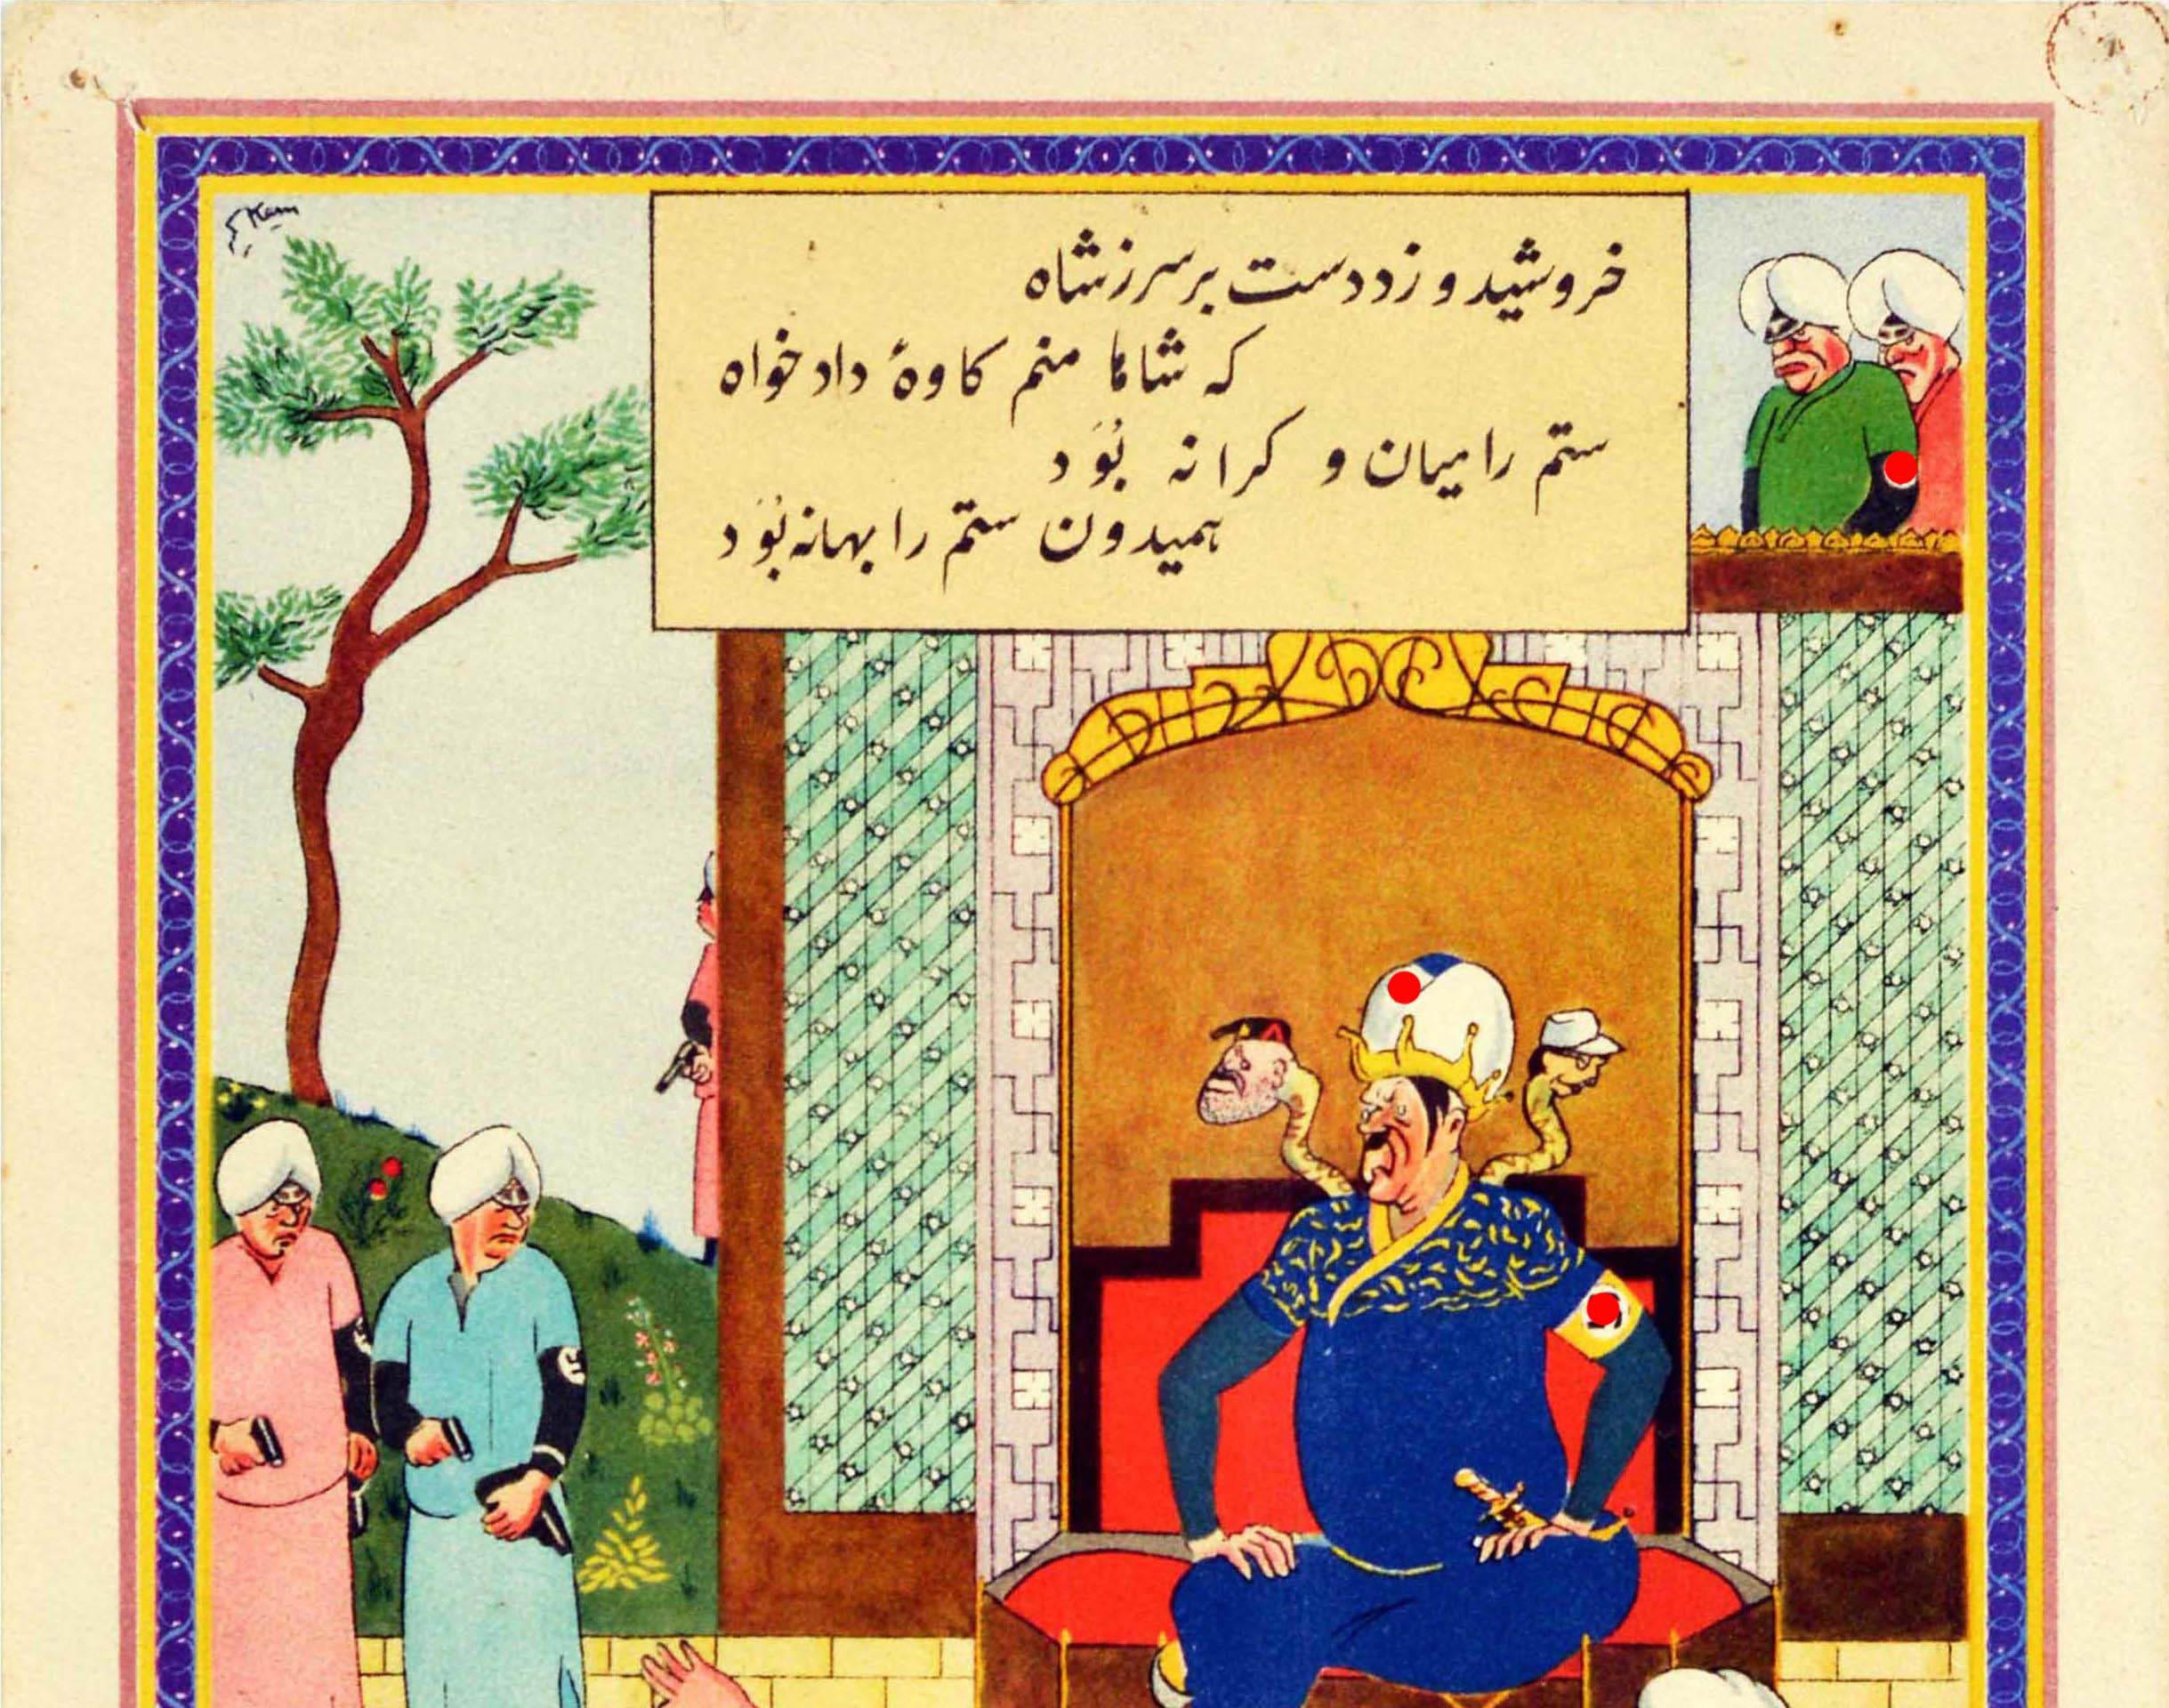 Kem
خروشید و زد دست بر سر ز شاه
که شاها منم کاوهٔ دادخواه
ستم را میان و کرانه بُوَد
همیدون ستم را بهانه بُوَد